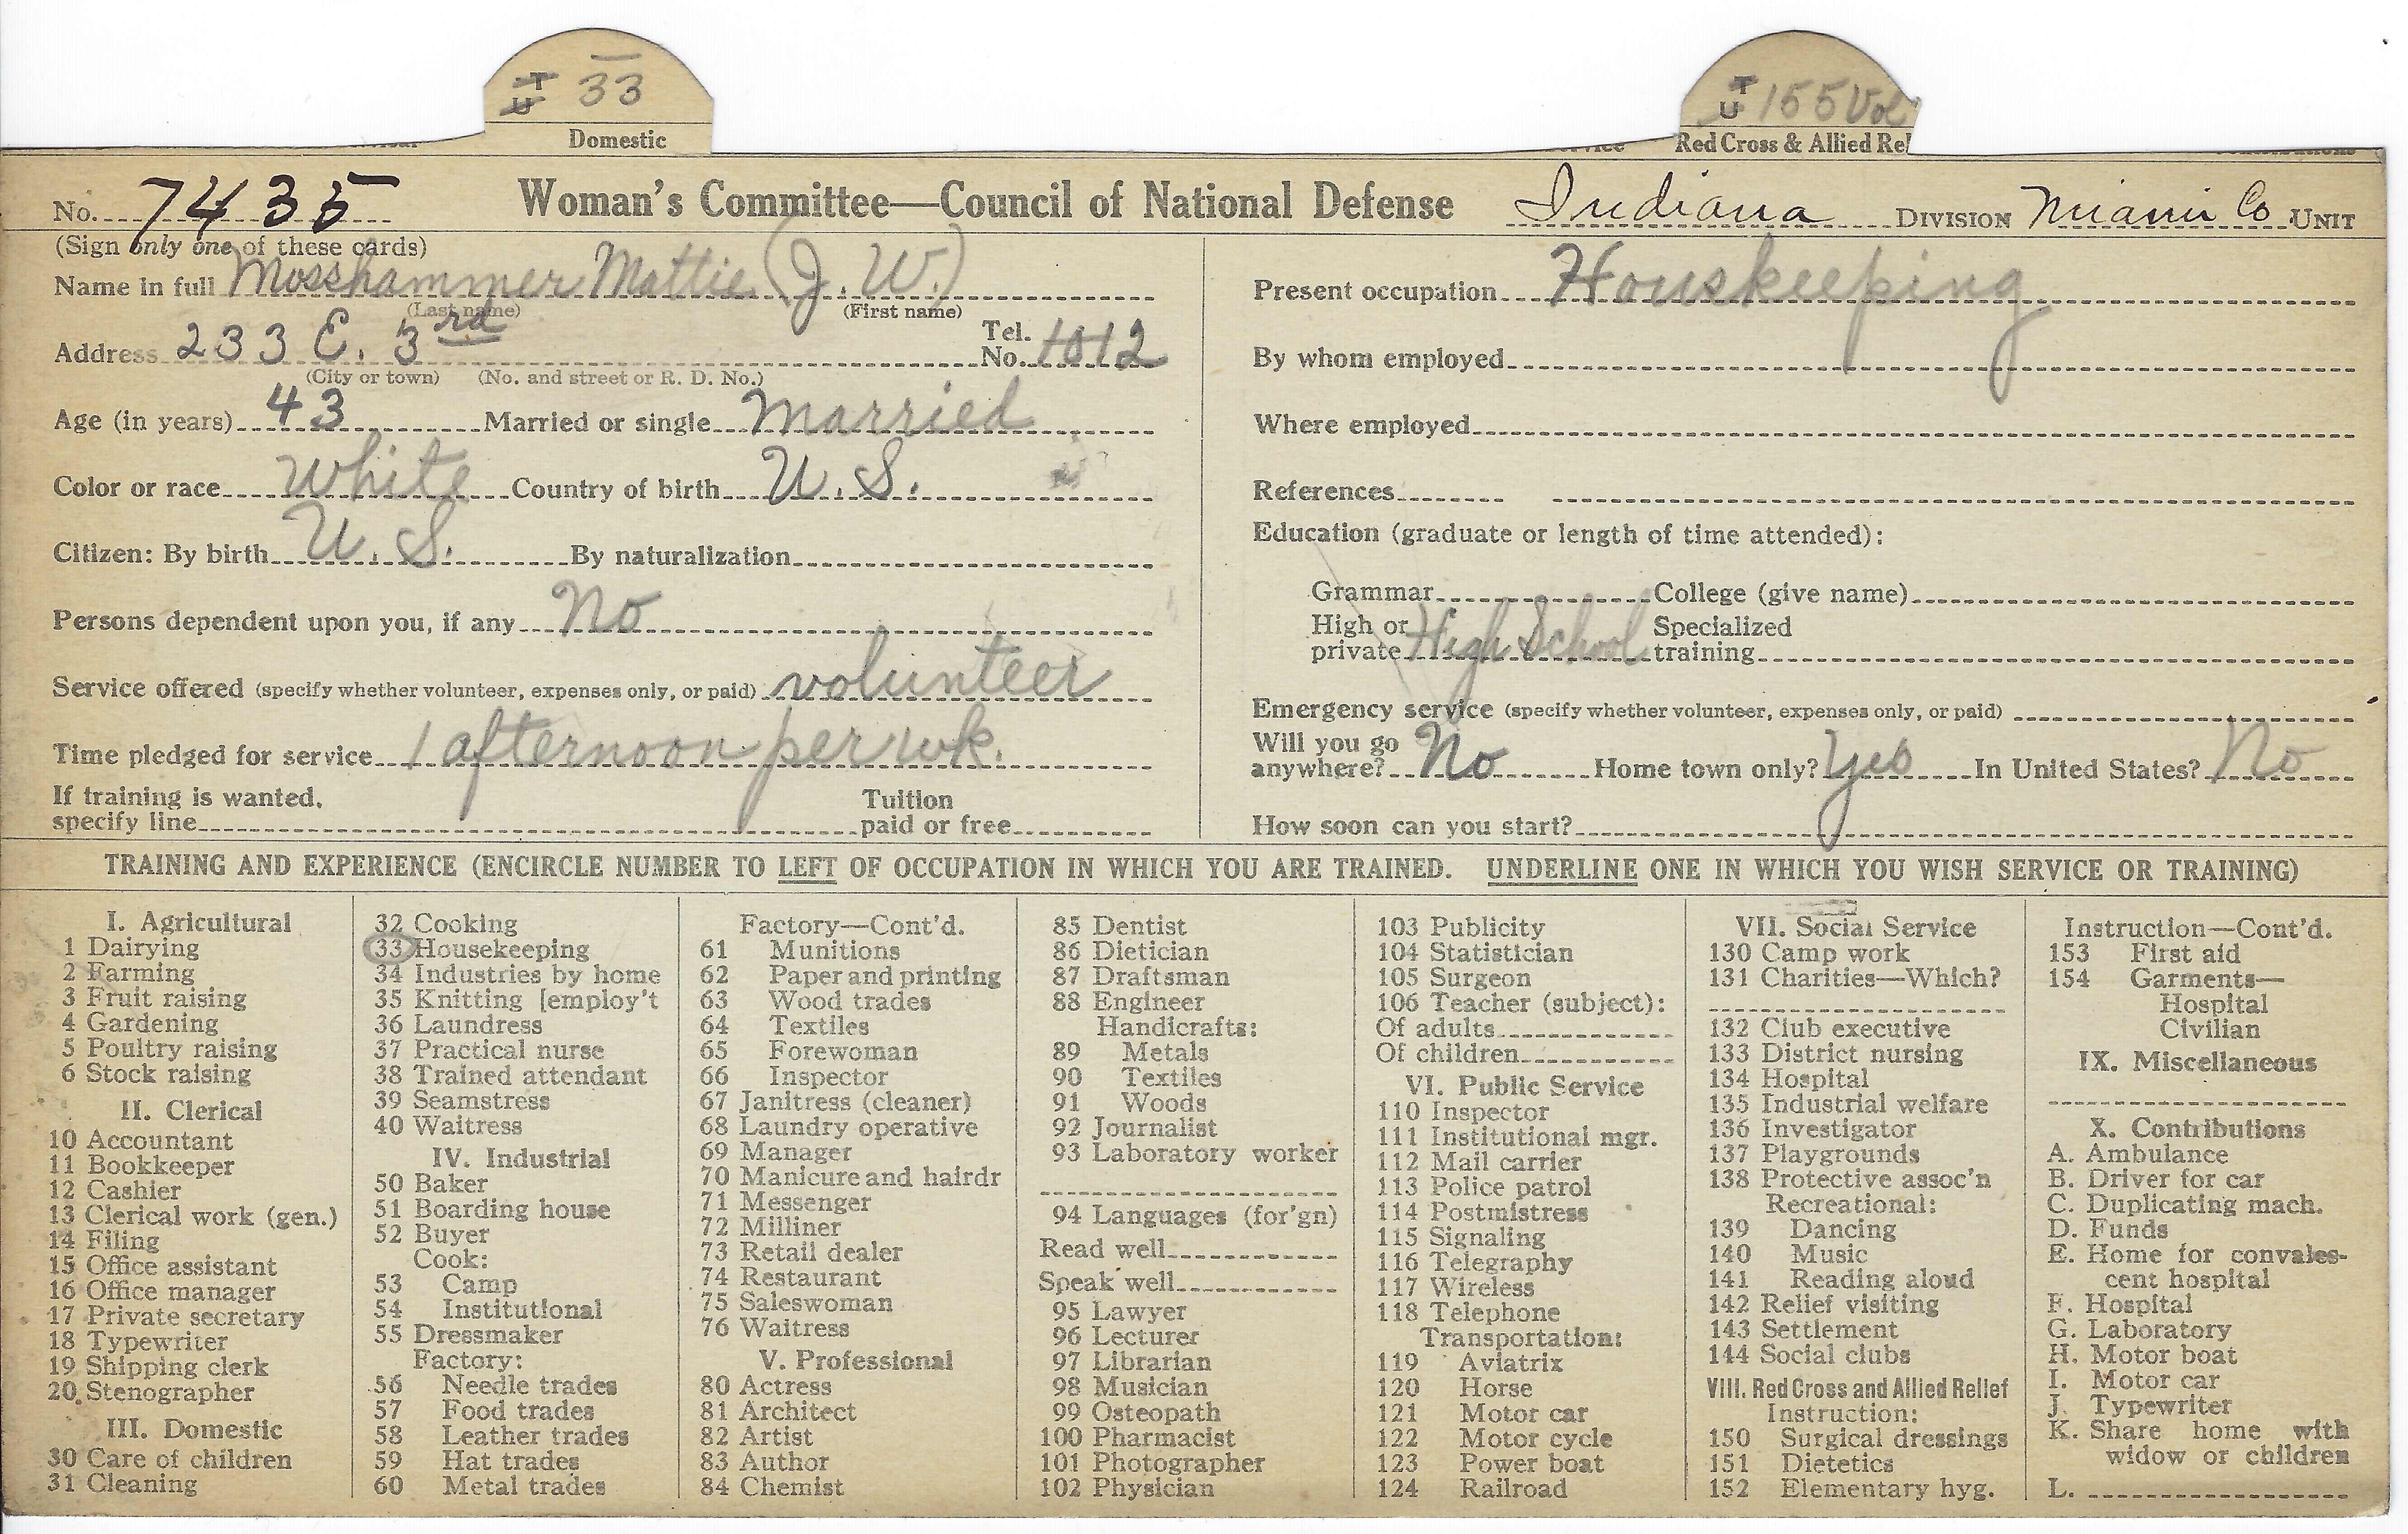 T U 33
T U 155 Vol
Domestic
Red Cross & Allied Rel
No. 7435 Woman's Committee—Council of National Defense Indiana DIVISION Miami Co UNIT
(Sign only one of these cards)
Name in full Mosshammer Mattie (J. W.)
(Last name) (First name)
Address 233 E. 3rd Tel. No. 1012
(City or town) (No. and street or R. D. No.)
Age (in years) 43 Married or single Married
Color or race White Country of birth U. S.
Citizen: By birth U. S. By naturalization
Persons dependent upon you, if any No
Service offered (specify whether volunteer, expenses only, or paid) volunteer
Time pledged for service 1 afternoon per wk.
If training is wanted, specify line Tuition paid or free
Present occupation Houskeeping
By whom employed
Where employed
References
Education (graduate or length of time attended):
Grammar College (give name)
High or private High School Specialized training
Emergency service (specify whether volunteer, expenses only, or paid)
Will you go anywhere? No Home town only? Yes In United States? No
How soon can you start?
TRAINING AND EXPERIENCE (ENCIRCLE NUMBER TO LEFT OF OCCUPATION IN WHICH YOU ARE TRAINED. UNDERLINE ONE IN WHICH YOU WISH SERVICE OR TRAINING)
I. Agricultural
1 Dairying
2 Farming
3 Fruit raising
4 Gardening
5 Poultry raising
6 Stock raising
II. Clerical
10 Accountant
11 Bookkeeper
12 Cashier
13 Clerical work (gen.)
14 Filing
15 Office assistant
16 Office manager
17 Private secretary
18 Typewriter
19 Shipping clerk
20 Stenographer
III. Domestic
30 Care of children
31 Cleaning
32 Cooking
33 Housekeeping
34 Industries by home
35 Knitting [employ't
36 Laundress
37 Practical nurse
38 Trained attendant
39 Seamstress
40 Waitress
IV. Industrial
50 Baker
51 Boarding house
52 Buyer
Cook:
53 Camp
54 Institutional
55 Dressmaker
Factory:
56 Needle trades
57 Food trades
58 Leather trades
59 Hat trades
60 Metal trades
Factory—Cont'd.
61 Munitions
62 Paper and printing
63 Wood trades
64 Textiles
65 Forewoman
66 Inspector
67 Janitress (cleaner)
68 Laundry operative
69 Manager
70 Manicure and hairdr
71 Messenger
72 Milliner
73 Retail dealer
74 Restaurant
75 Saleswoman
76 Waitress
V. Professional
80 Actress
81 Architect
82 Artist
83 Author
84 Chemist
85 Dentist
86 Dietician
87 Draftsman
88 Engineer
Handicrafts:
89 Metals
90 Textiles
91 Woods
92 Journalist
93 Laboratory worker
94 Languages (for'gn)
Read well
Speak well
95 Lawyer
96 Lecturer
97 Librarian
98 Musician
99 Osteopath
100 Pharmacist
101 Photographer
102 Physician
103 Publicity
104 Statistician
105 Surgeon
106 Teacher (subject):
Of adults
Of children
VI. Public Service
110 Inspector
111 Institutional mgr.
112 Mail carrier
113 Police patrol
114 Postmistress
115 Signaling
116 Telegraphy
117 Wireless
118 Telephone
Transportation:
119 Aviatrix
120 Horse
121 Motor car
122 Motor cycle
123 Power boat
124 Railroad
VII. Social Service
130 Camp work
131 Charities—Which?
132 Club executive
133 District nursing
134 Hospital
135 Industrial welfare
136 Investigator
137 Playgrounds
138 Protective assoc'n
Recreational:
139 Dancing
140 Music
141 Reading aloud
142 Relief visiting
143 Settlement
144 Social clubs
VIII. Red Cross and Allied Relief
Instruction:
150 Surgical dressings
151 Dietetics
152 Elementary hyg.
Instruction—Cont'd.
153 First aid
154 Garments—
Hospital
Civilian
IX. Miscellaneous
X. Contributions
A. Ambulance
B. Driver for car
C. Duplicating mach.
D. Funds
E. Home for convales-
cent hospital
F. Hospital
G. Laboratory
H. Motor boat
I. Motor car
J. Typewriter
K. Share home with
widow or children
L.